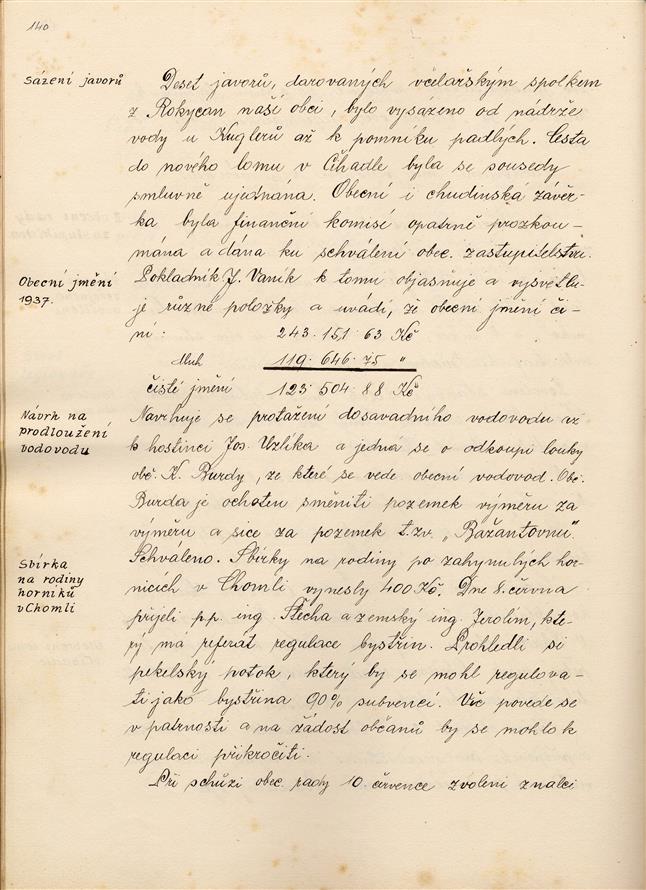 140
Sázení javorů
Deset javorů, darovaných včelařským spolkem
z Rokycan naší obci, bylo vysázeno od nádrže
vody u Kuglerů až k pomníku padlých. Cesta
do nového lomu v Čihadle byla se sousedy
smluvně ujednána. Obecní i chudinská závěr-
ka byla finanční komisí opatrně prozkou-
mána a dána ku schválení obec. zastupitelstvu.
Obecní jmění
1937.
Pokladník J. Vaník k tomu objasňuje a vysvětlu-
je různé položky a uvádí, že obecní jmění či-
ní: 243.151.63 Kč
dluh 119.646.75 "
čisté jmění 123.504.88 Kč
Návrh na
prodloužení
vodovodu
Navrhuje se protažení dosavadního vodovodu až
k hostinci Jos. Uzlíka a jedná se o odkoupi louky
obč. K. Burdy, ze které se vede obecní vodovod. Obč.
Burda je ochoten směniti pozemek výměru za
výměru a sice za pozemek t.zv. „Bažantovnu".
Sbírka
na rodiny
horníků
v Chomli
Schváleno. Sbírky na rodiny po zahynulých hor-
nících v Chomli vynesly 400 Kč. Dne 8. června
přijeli p.p. ing. Štěcha a zemský ing. Jerolím, kte-
rý má referát regulace bystřin. Prohledli si
pekelský potok, který by se mohl regulova-
ti jako bystřina 90% subvencí. Věc povede se
v patrnosti a na žádost občanů by se mohlo k
regulaci přikročiti.
Při schůzi obec. rady 10. července zvoleni znalci